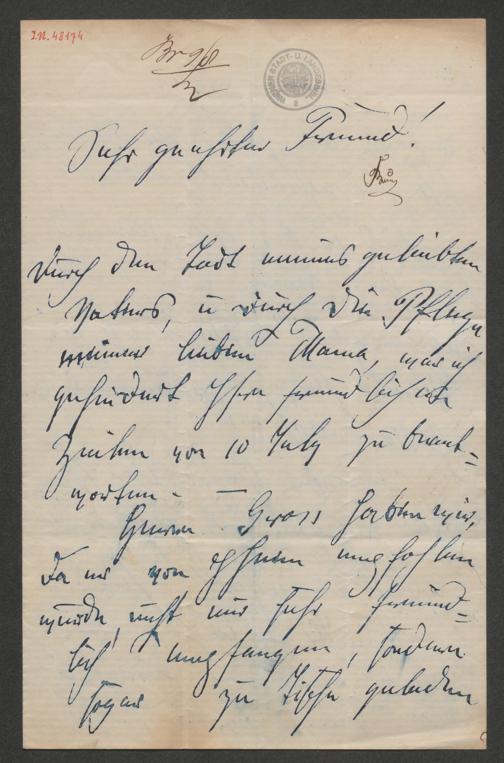 I.N. 48174
WIENER STADT- U. LANDESBIBL.
Sehr geehrter Freund!
Durch den Tod meines geliebten
Vaters, u durch die Pflege
meiner lieben Mama, war ich
gehindert Ihre freundlichen
Zeilen von 10 July zu beant-
worten. —
Herrn Gross haben wir,
da er von Ihnen empfohlen
wurde, nicht nur sehr freund-
lich empfangen, sondern
sogar zu Tische geladen